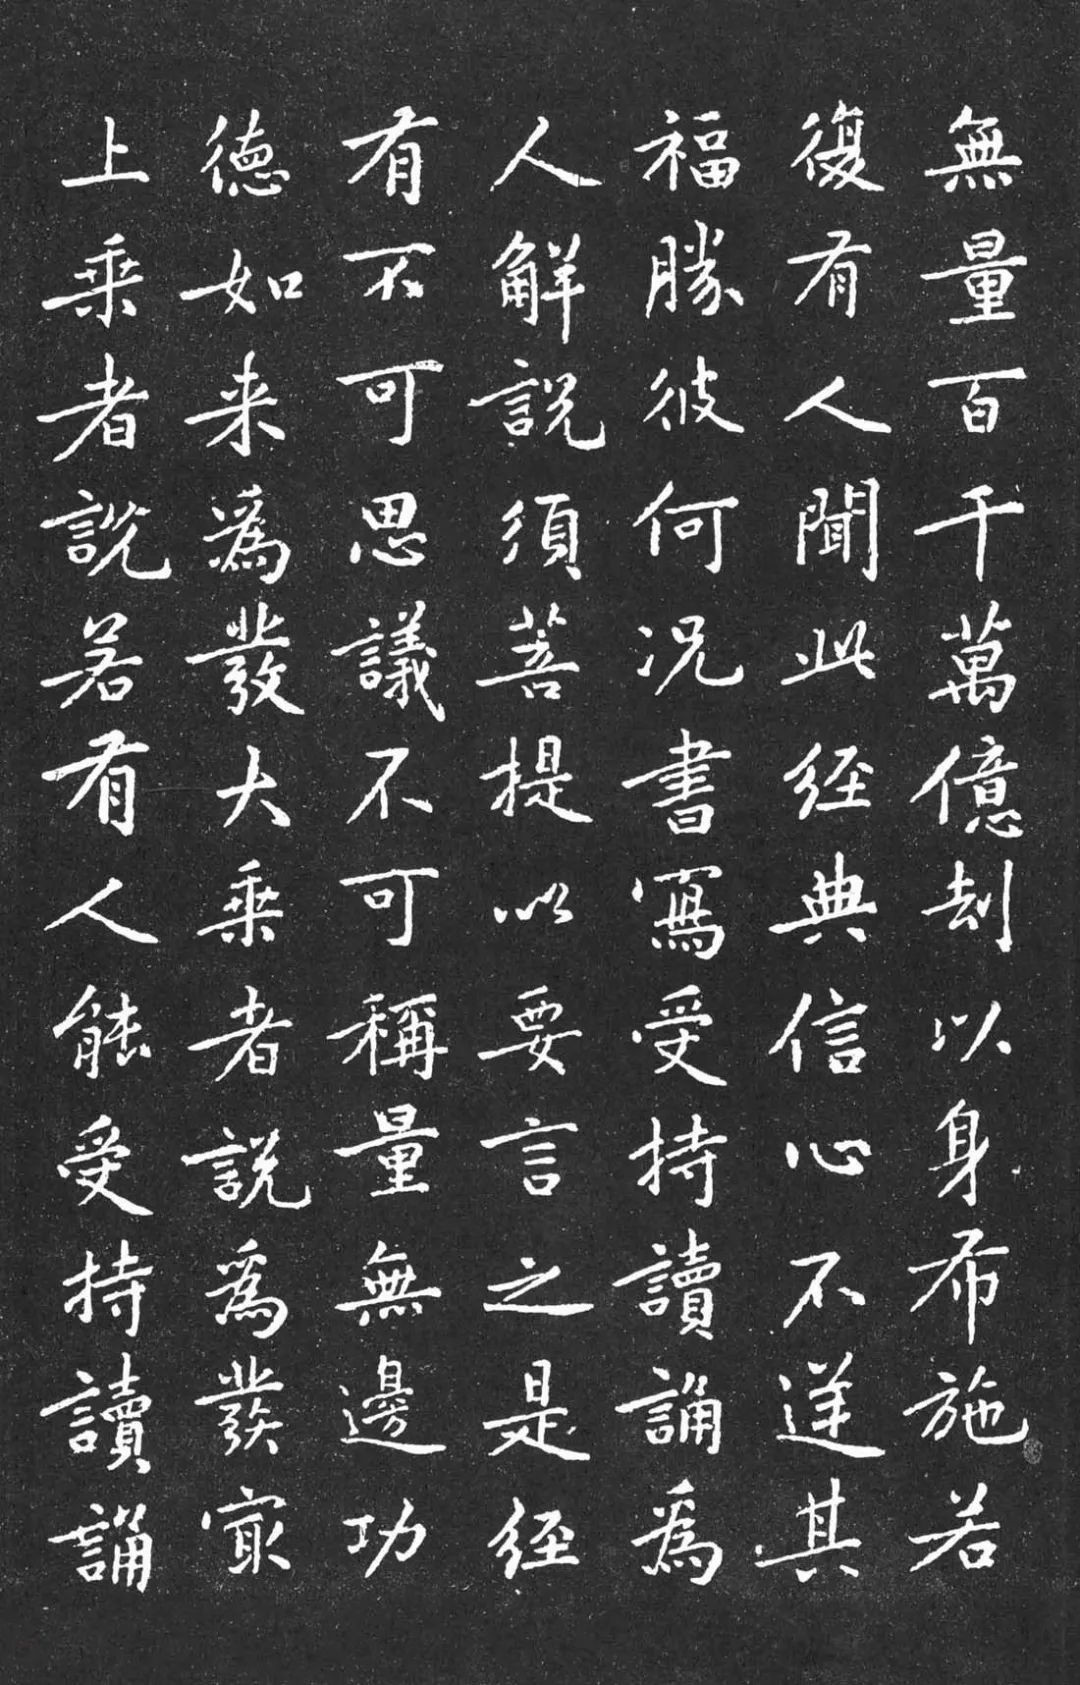 無量百千萬億劫以身布施若
復有人聞此經典信心不逆其
福勝彼何況書寫受持讀誦爲
人解說須菩提以要言之是經
有不可思議不可稱量無邊功
德如来爲發大乘者說爲發冣
上乘者說若有人能受持讀誦